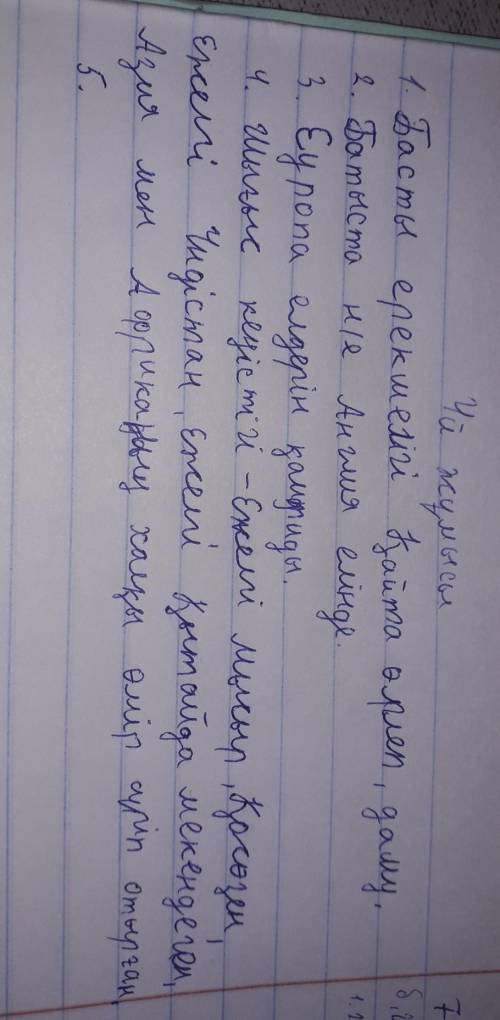 Үй жұмысы
1. Басты ерекшелігі Қайта өрлеп, даму.
2. Батыста н/е Англия елінде.
3. Еуропа елдерін қамтиды.
4. Шығыс кеңістігі - Ежелгі мысыр, Қосөзен,
Ежелгі Үндістан, Ежелгі Қытайда мекендеген,
Азия мен Африканың халқы өмір сүріп отырған,
5.
7